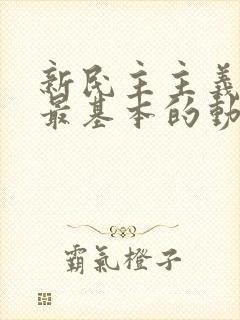 新民主主義
最基本的動
霸氣橙子